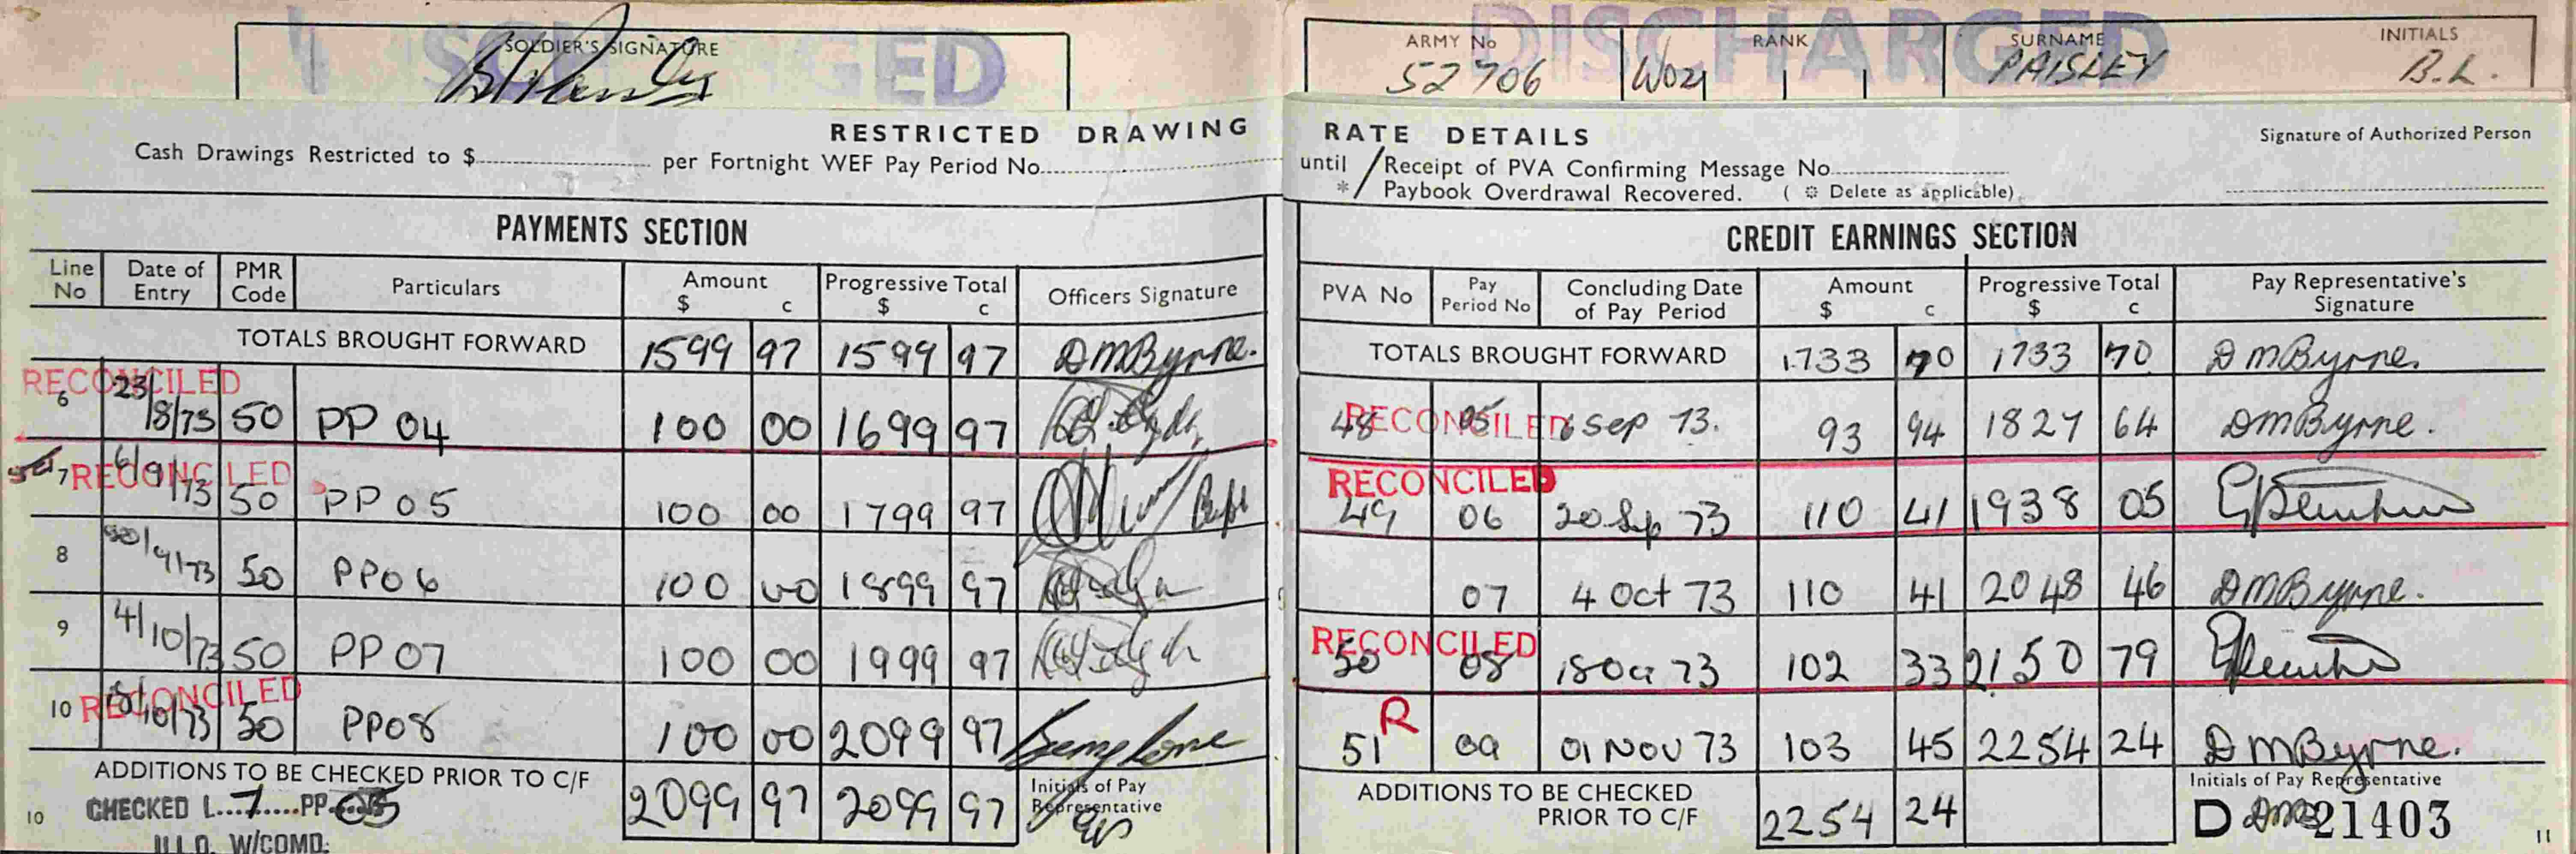 DISCHARGED
SOLDIER'S SIGNATURE
ARMY No RANK SURNAME INITIALS
52706 WO2 PAISLEY B.L.
RESTRICTED DRAWING RATE DETAILS
Signature of Authorized Person
Cash Drawings Restricted to $ per Fortnight WEF Pay Period No. until / Receipt of PVA Confirming Message No.
* / Paybook Overdrawal Recovered. ( * Delete as applicable)
PAYMENTS SECTION
Line No Date of Entry PMR Code Particulars Amount $ c Progressive Total $ c Officers Signature
TOTALS BROUGHT FORWARD 1599 97 1599 97 DMByrne.
RECONCILED
6 23/8/73 50 PP 04 100 00 1699 97
RECONCILED
7 6/9/73 50 PP 05 100 00 1799 97
8 20/9/73 50 PP06 100 00 1899 97
9 4/10/73 50 PP 07 100 00 1999 97
RECONCILED
10 18/10/73 50 PP08 100 00 2099 97
ADDITIONS TO BE CHECKED PRIOR TO C/F 2099 97 2099 97 Initials of Pay Representative
CHECKED L...7.....PP...05
W/COMD.
10
CREDIT EARNINGS SECTION
PVA No Pay Period No Concluding Date of Pay Period Amount $ c Progressive Total $ c Pay Representative's Signature
TOTALS BROUGHT FORWARD 1733 70 1733 70 DMByrne.
RECONCILED
48 05 6 Sep 73. 93 94 1827 64 DMByrne.
RECONCILED
49 06 20 Sep 73 110 41 1938 05
07 4 Oct 73 110 41 2048 46 DMByrne.
RECONCILED
50 08 18 Oct 73 102 33 2150 79
R
51 09 01 NOV 73 103 45 2254 24 DMByrne.
ADDITIONS TO BE CHECKED PRIOR TO C/F 2254 24 Initials of Pay Representative
D 21403
11